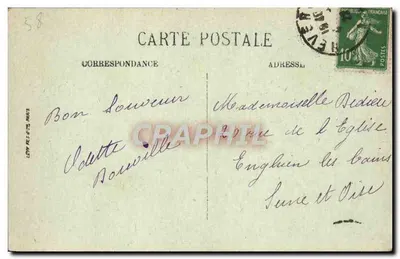 58
CARTE POSTALE
CORRESPONDANCE
ADRESSE
Bon Souvenir
Odette
Bonville
Mademoiselle Dedieu
20 rue de l'Eglise
Enghien les bains
Seine et Oise
CPAPHIL
10c
NEVERS